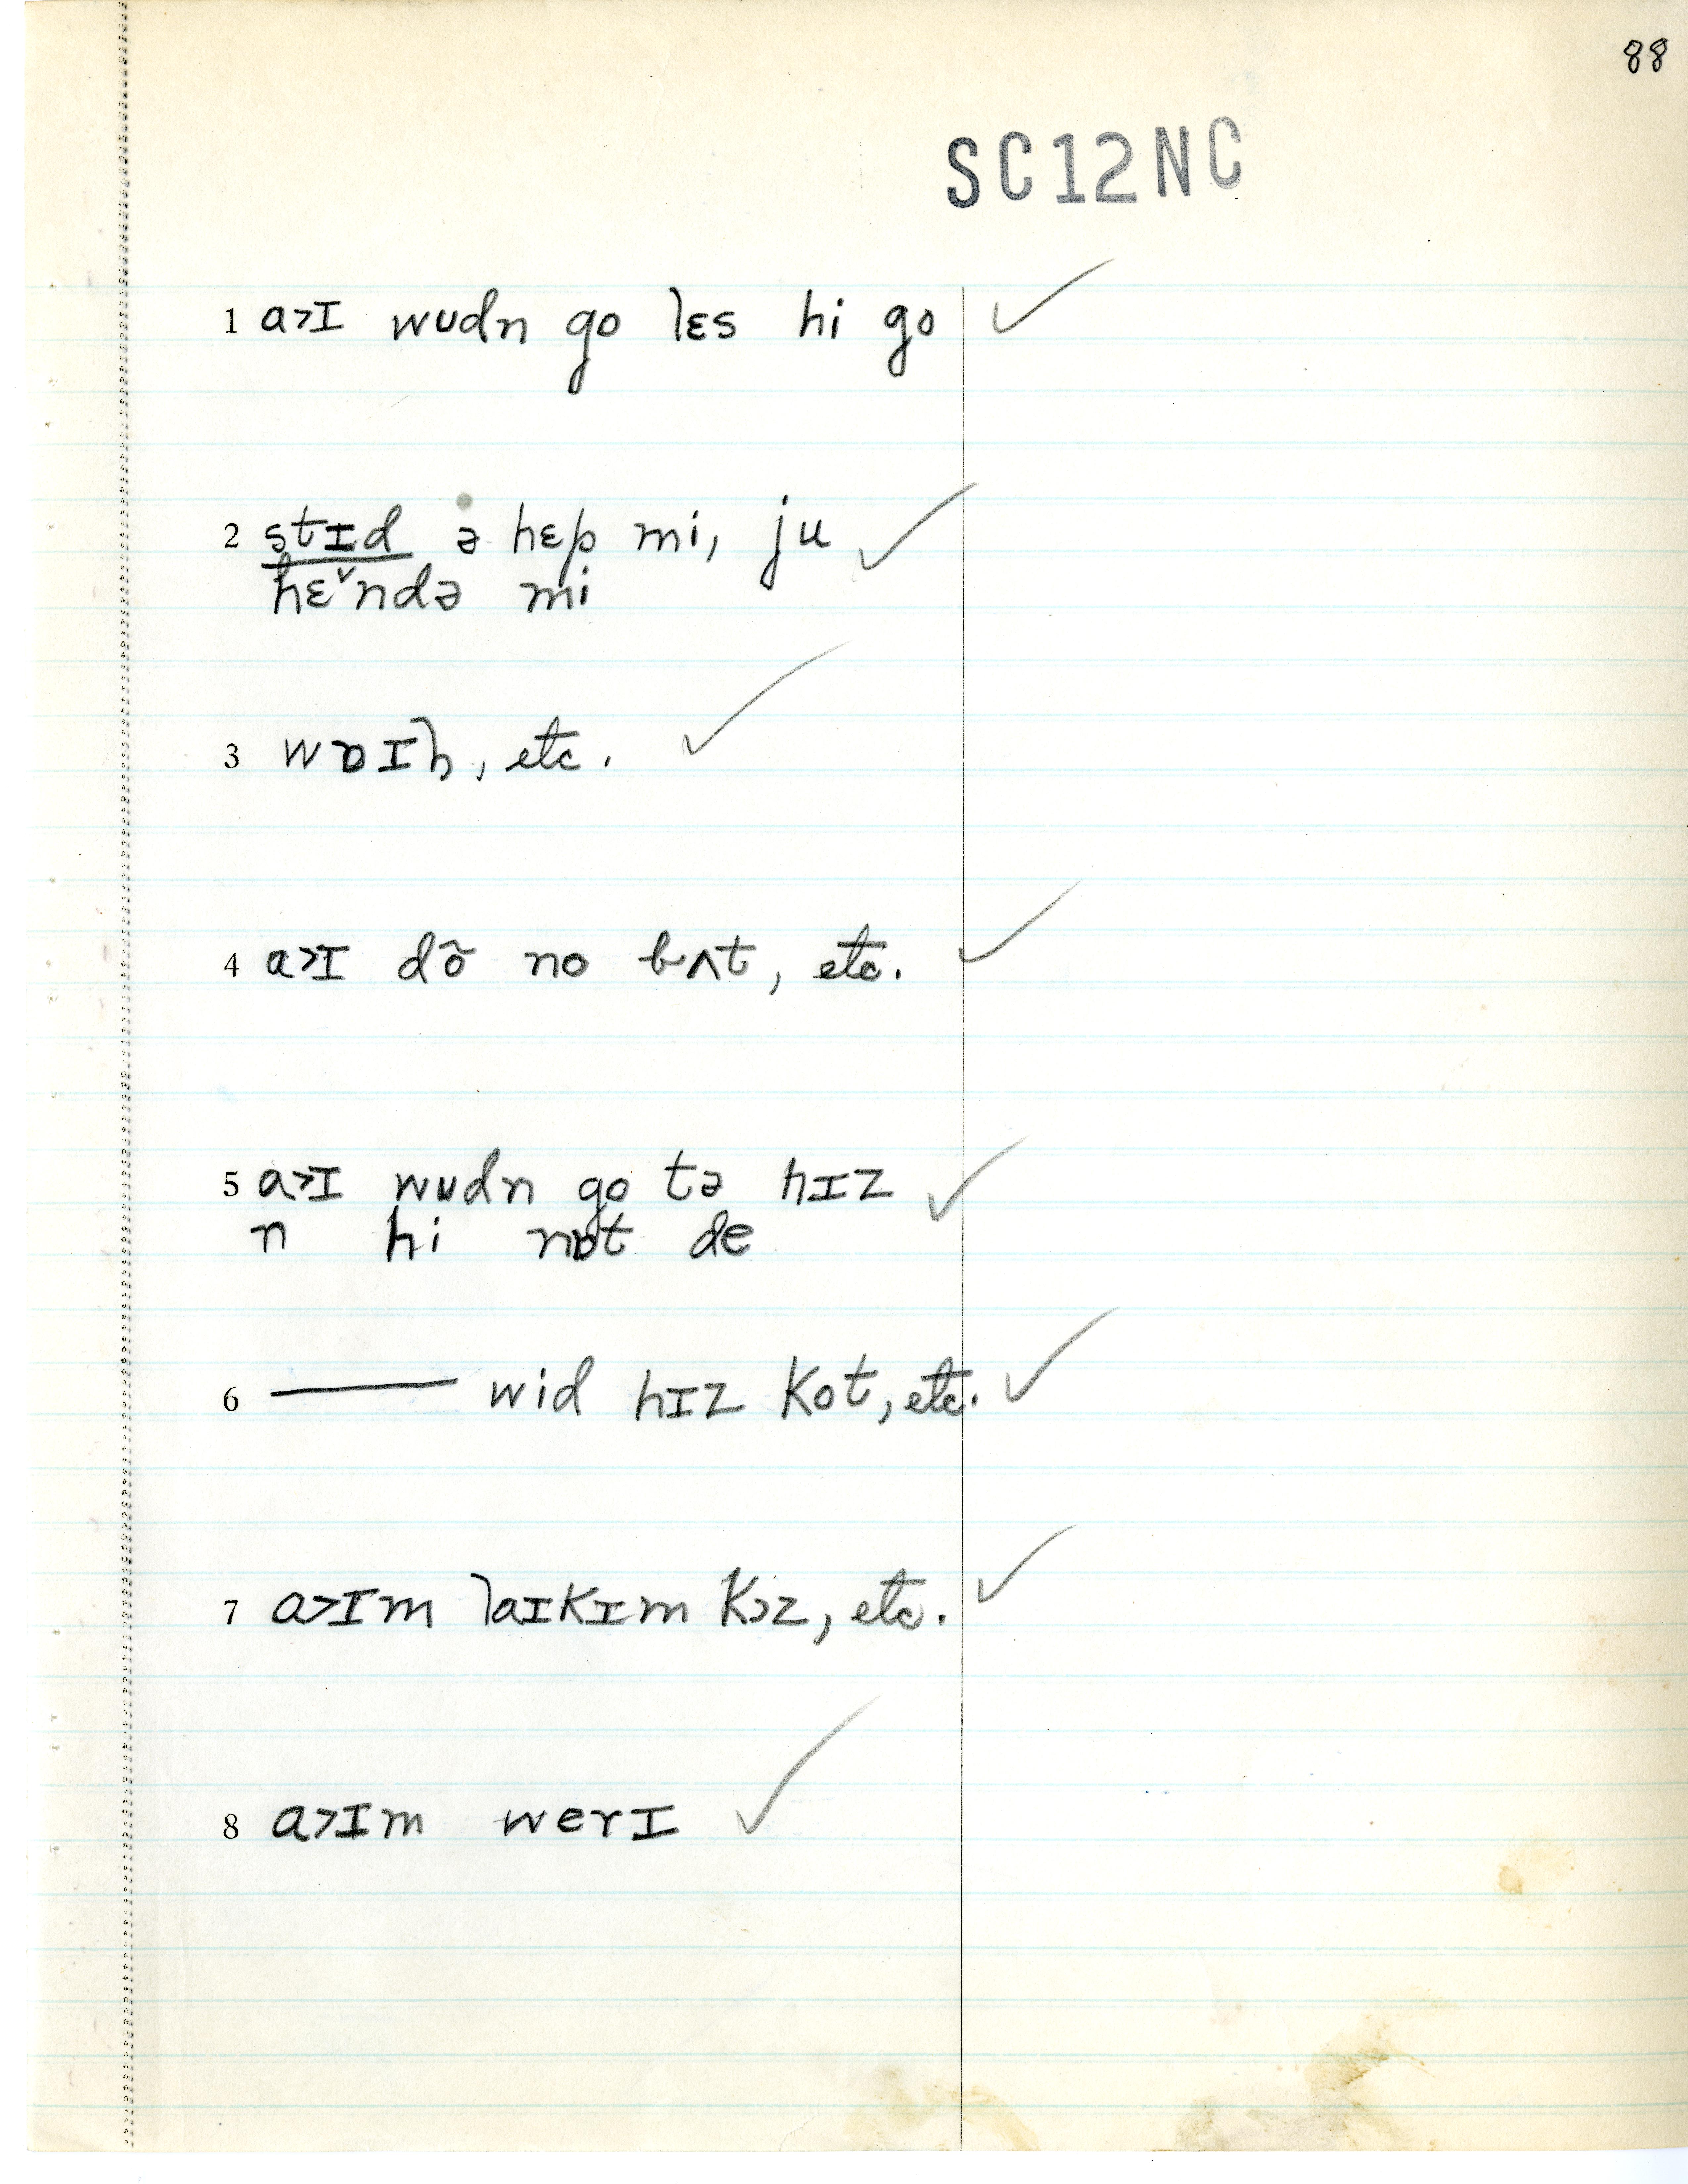 88
SC12NC
1 a>ɪ wʊdn go lɛs hi go ✓
2 stɪd ə hɛp mi, ju ✓
hɛˇndə mi
3 wɒɪɦ, etc. ✓
4 a>ɪ dõ no bʌt, etc. ✓
5 a>ɪ wʊdn go tə hɪz ✓
n hi nɒt de
6 —— wid hɪz kot, etc. ✓
7 a>ɪm laɪkɪm kɔz, etc. ✓
8 a>ɪm werɪ ✓